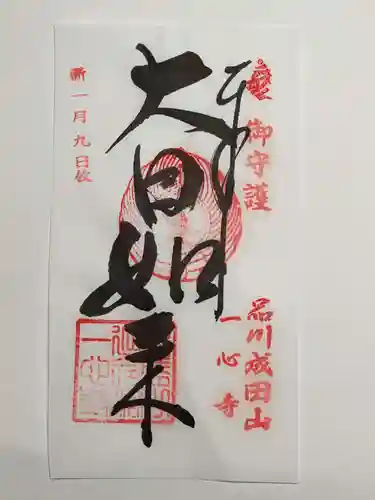 御守護
品川成田山
一心寺
大日如来
新一月九日